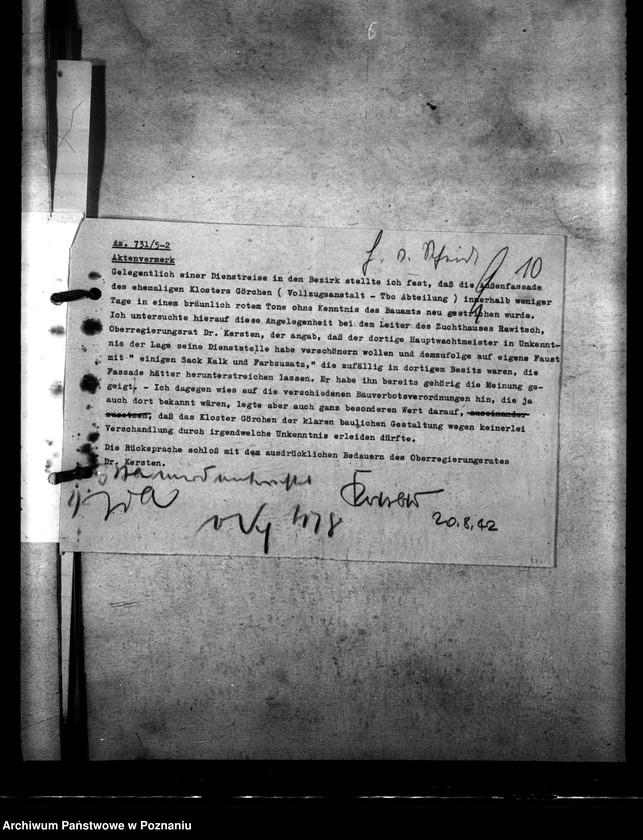 6
Az. 731/5-2
10
Aktenvermerk
Gelegentlich einer Dienstreise in den Bezirk stellte ich fest, daß die Außenfassade
des ehemaligen Klosters Görchen ( Vollzugsanstalt - Tbc Abteilung ) innerhalb weniger
Tage in einem bräunlich rotem Tone ohne Kenntnis des Bauamts neu gestrichen wurde.
Ich untersuchte hierauf diese Angelegenheit bei dem Leiter des Zuchthauses Rawitsch,
Oberregierungsrat Dr. Kersten, der angab, daß der dortige Hauptwachtmeister in Unkennt-
nis der Lage seine Dienststelle habe verschönern wollen und demzufolge auf eigene Faust
mit " einigen Sack Kalk und Farbzusatz," die zufällig in dortigem Besitz waren, die
Fassade hätter herunterstreichen lassen. Er habe ihn bereits gehörig die Meinung ge-
geigt. - Ich dagegen wies auf die verschiedenen Bauverbotsverordnungen hin, die ja
auch dort bekannt wären, legte aber auch ganz besonderen Wert darauf, auseinander
zusetzen, daß das Kloster Görchen der klaren baulichen Gestaltung wegen keinerlei
Verschandlung durch irgendwelche Unkenntnis erleiden dürfte.
Die Rücksprache schloß mit dem ausdrücklichen Bedauern des Oberregierungsrates
Dr. Kersten.
20.8.42
Archiwum Państwowe w Poznaniu